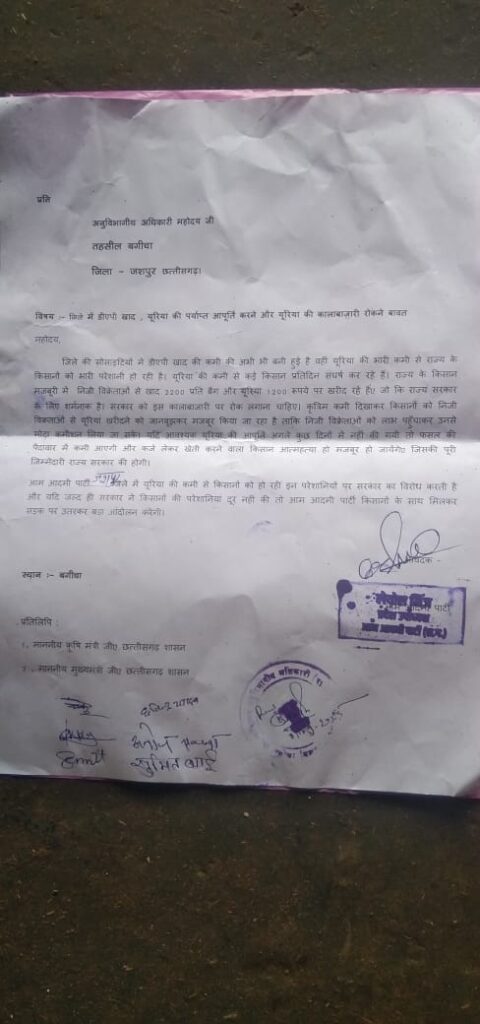 प्रति
अनुविभागीय अधिकारी महोदय जी
तहसील बगीचा
जिला - जशपुर छत्तीसगढ़।
विषय :- जिले में डीएपी खाद , यूरिया की पर्याप्त आपूर्ति करने और यूरिया की कालाबाज़ारी रोकने बावत
महोदय,
जिले की सोसाइटियों में डीएपी खाद की कमी की अभी भी बनी हुई है वहीं यूरिया की भारी कमी से राज्य के
किसानों को भारी परेशानी हो रही है। यूरिया की कमी से कई किसान प्रतिदिन संघर्ष कर रहे हैं। राज्य के किसान
मजबूरी में निजी विक्रेताओं से खाद 2200 प्रति बैग और यूरिया 1200 रूपये पर खरीद रहे हैंए जो कि राज्य सरकार
के लिए शर्मनाक है। सरकार को इस कालाबाजारी पर रोक लगाना चाहिए। कृत्रिम कमी दिखाकर किसानों को निजी
विक्रेताओं से यूरिया खरीदने को जानबूझकर मजबूर किया जा रहा है ताकि निजी विक्रेताओं को लाभ पहुँचाकर उनसे
मोटा कमीशन लिया जा सके। यदि आवश्यक यूरिया की आपूर्ति अगले कुछ दिनों में नहीं की गयी तो फसल की
पैदावार में कमी आएगी और कर्ज लेकर खेती करने वाला किसान आत्महत्या हो मजबूर हो जायेंगेए जिसकी पूरी
जिम्मेदारी राज्य सरकार की होगी।
आम आदमी पार्टी जिले में यूरिया की कमी से किसानों को हो रही इन परेशानियों पर सरकार का विरोध करती है
और यदि जल्द ही सरकार ने किसानों की परेशानियां दूर नहीं की तो आम आदमी पार्टी किसानों के साथ मिलकर
सड़क पर उतरकर बड़ा आंदोलन करेगी।
स्थान :- बगीचा
पार्टी
आम आदमी पार्टी (छ.ग.)
प्रतिलिपि :
1. माननीय कृषि मंत्री जीए छत्तीसगढ़ शासन
2. माननीय मुख्यमंत्री जीए छत्तीसगढ़ शासन